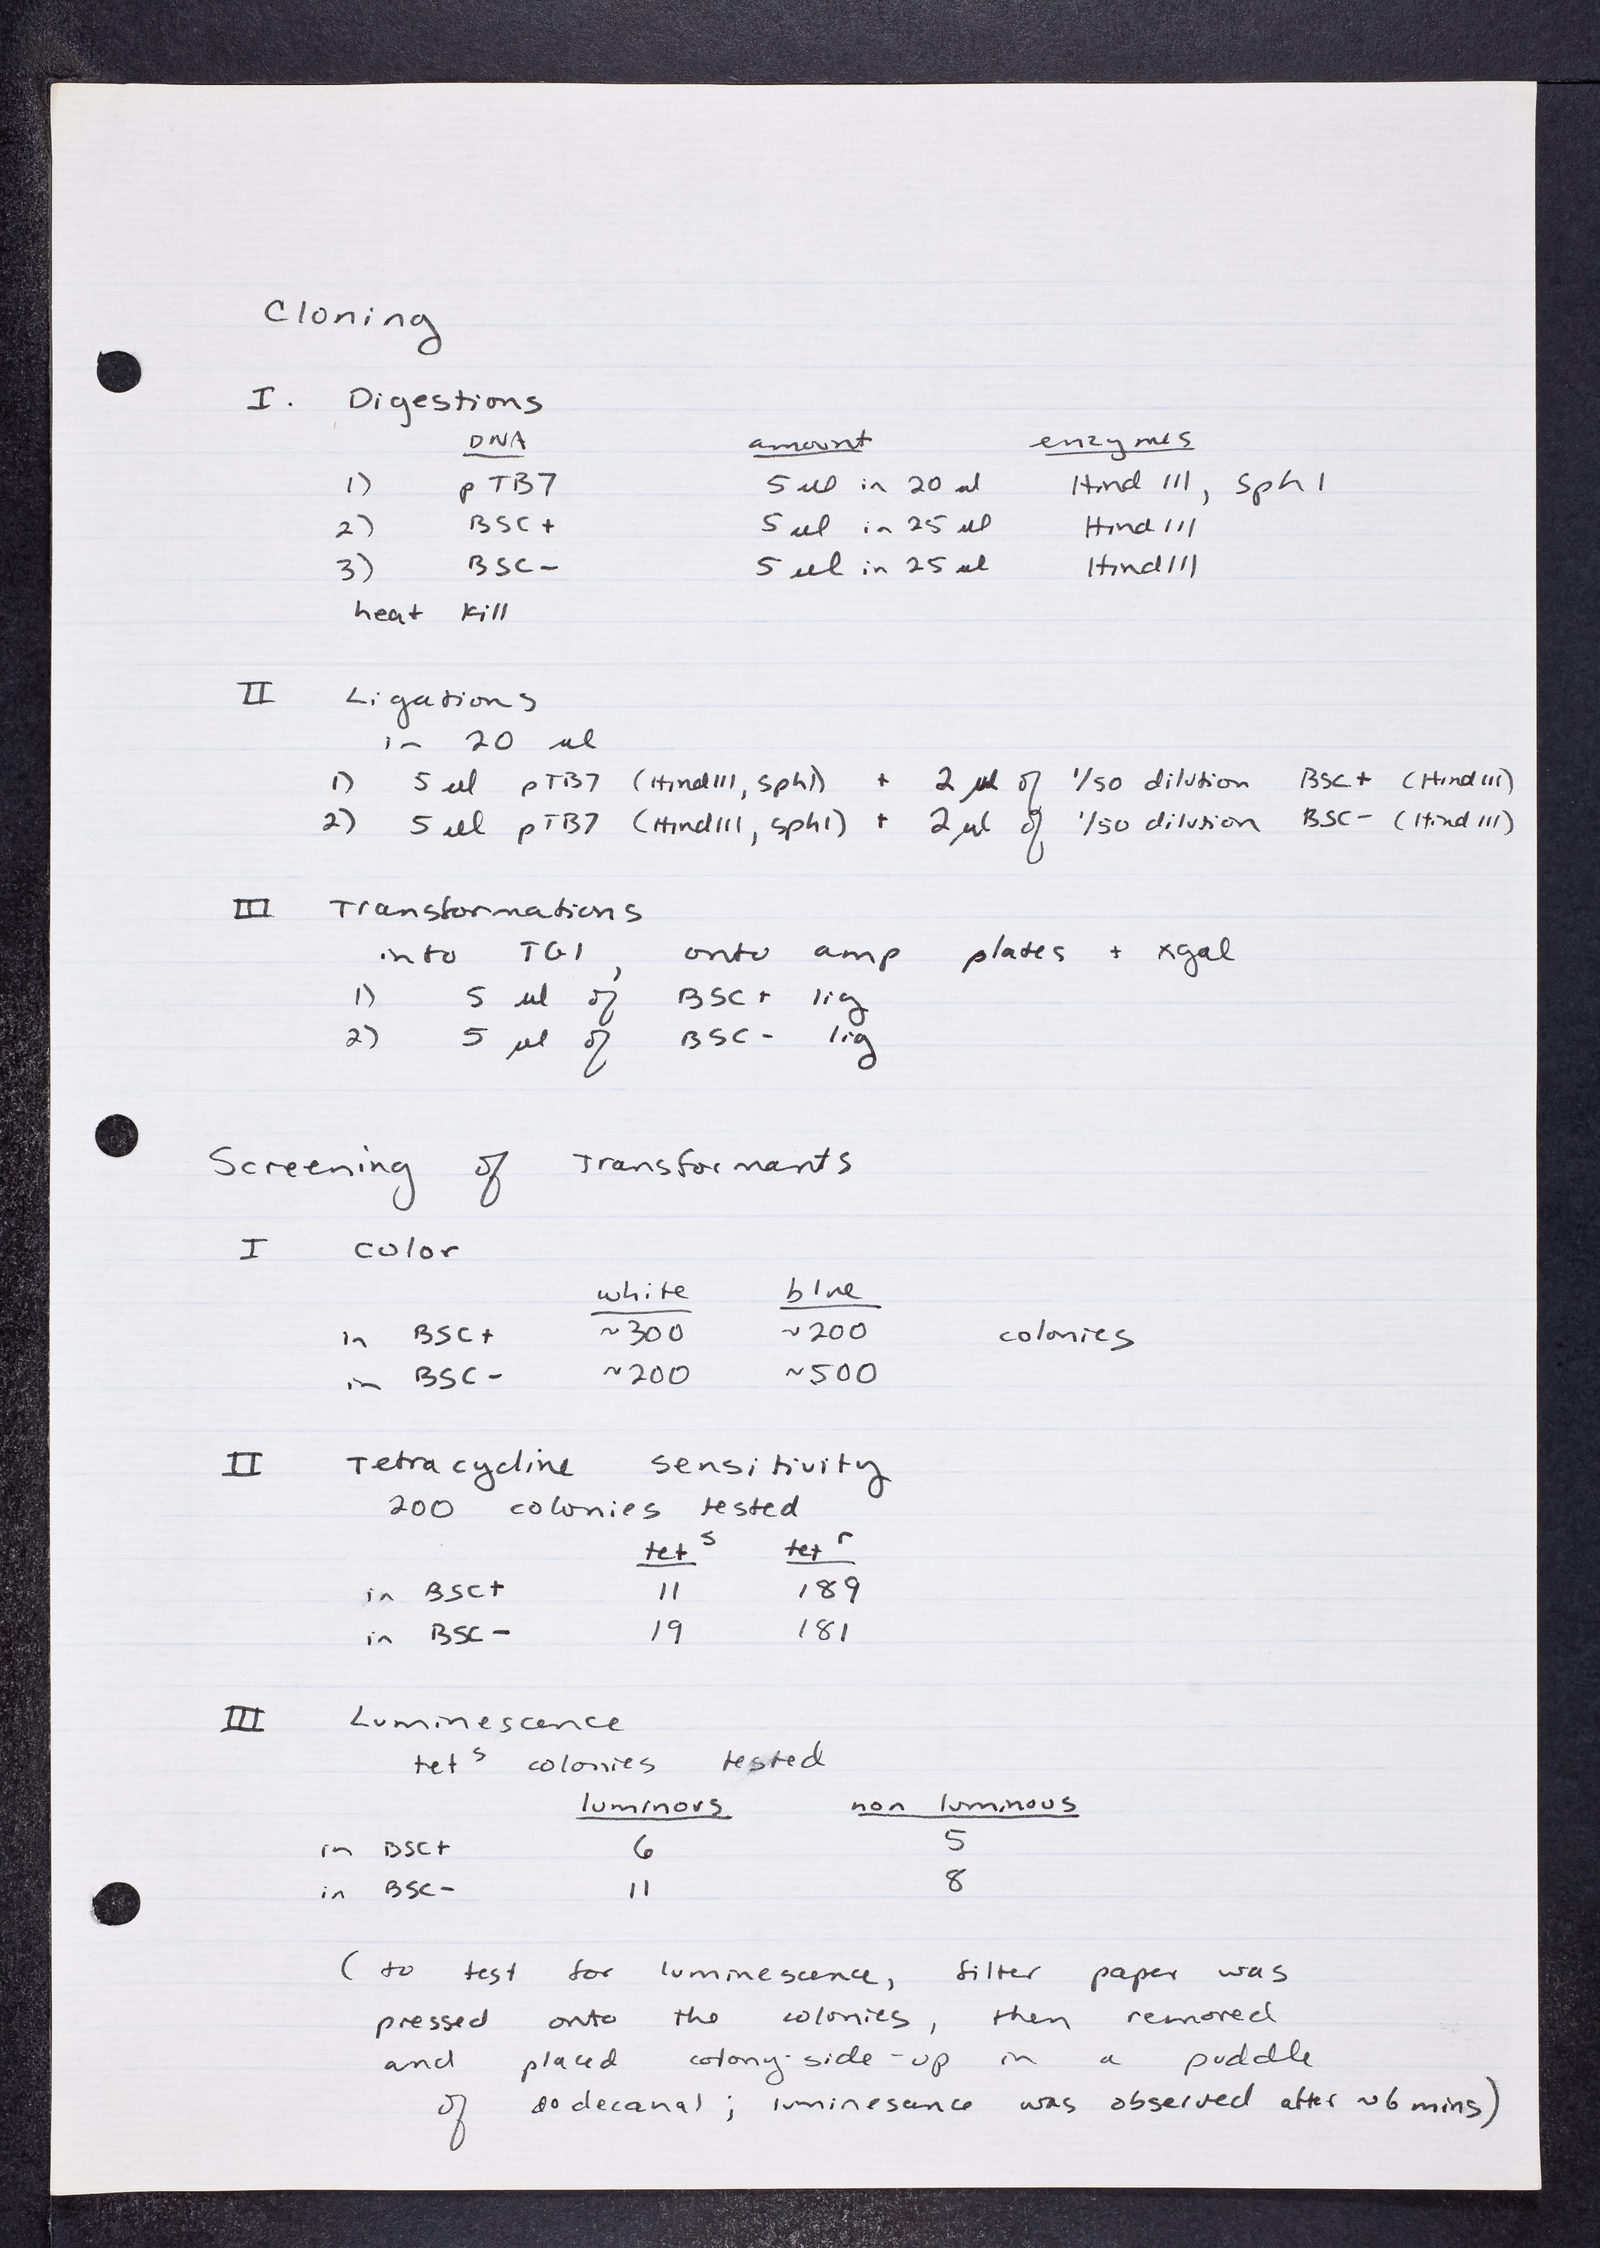 Cloning
I. Digestions
DNA amount enzymes
1) pTB7 5 µl in 20 µl Hind III, Sph I
2) BSC+ 5 µl in 25 µl Hind III
3) BSC- 5 µl in 25 µl Hind III
heat kill
II Ligations
in 20 µl
1) 5 µl pTB7 (Hind III, Sph I) + 2 µl of 1/50 dilution BSC+ (Hind III)
2) 5 µl pTB7 (Hind III, Sph I) + 2 µl of 1/50 dilution BSC- (Hind III)
III Transformations
into TG1, onto amp plates + xgal
1) 5 µl of BSC+ lig
2) 5 µl of BSC- lig
Screening of Transformants
I Color
white blue
in BSC+ ~300 ~200 colonies
in BSC- ~200 ~500
II Tetracycline sensitivity
200 colonies tested
tet s tet r
in BSC+ 11 189
in BSC- 19 181
III Luminescence
tet s colonies tested
luminous non luminous
in BSC+ 6 5
in BSC- 11 8
(to test for luminescence, filter paper was
pressed onto the colonies, then removed
and placed colony-side-up in a puddle
of dodecanal; luminesance was observed after ~6 mins)